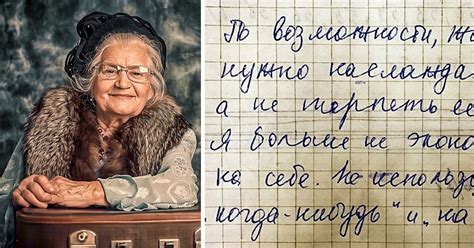 По возможности, жи
нужно наслажда
а не терпеть ее
Я больше не эконо
на себе. Не использ
когда-нибудь" и „на